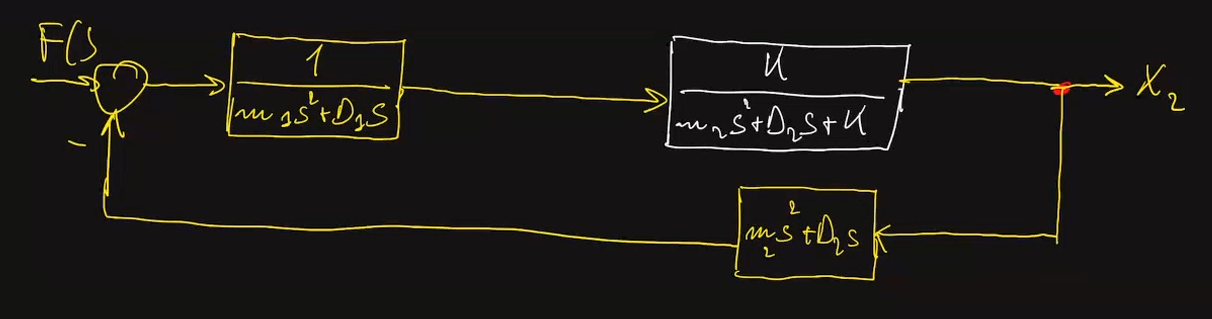 F(s
1
m₁s²+D₁s
K
m₂s²+D₂s+K
X₂
-
m₂s²+D₂s